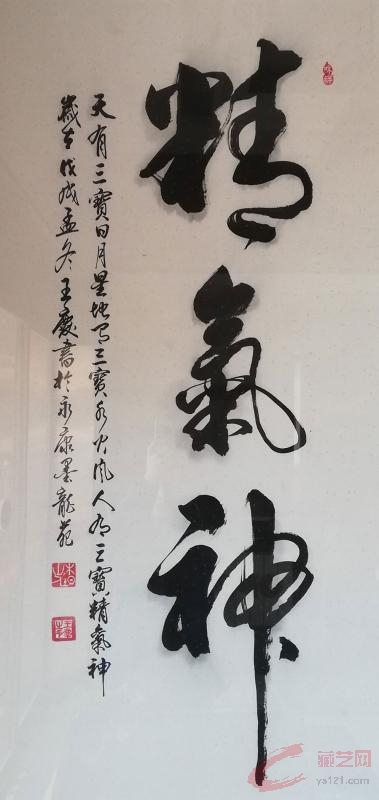 精氣神
天有三寶日月星地有三寶水火風人有三寶精氣神
歲在戊戌孟冬王慶書於永康墨龍苑
藏艺网
ys121.com